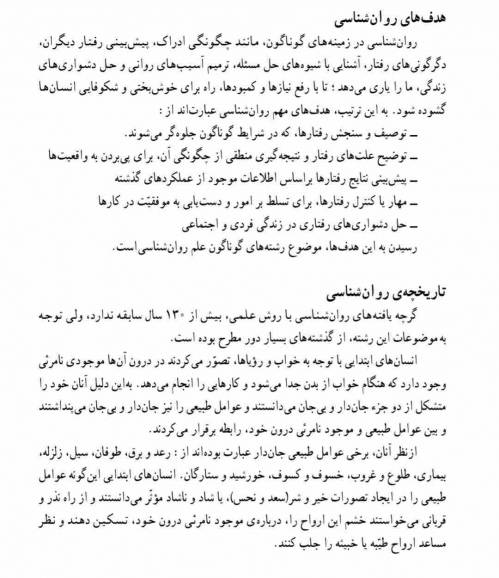 هدف‌های روان‌شناسی
روان‌شناسی در زمینه‌های گوناگون، مانند چگونگی ادراک، پیش‌بینی رفتار دیگران،
دگرگونی‌های رفتار، آشنایی با شیوه‌های حل مسئله، ترمیم آسیب‌های روانی و حل دشواری‌های
زندگی، ما را یاری می‌دهد ؛ تا با رفع نیازها و کمبودها، راه برای خوش‌بختی و شکوفایی انسان‌ها
گشوده شود. به این ترتیب، هدف‌های مهم روان‌شناسی عبارت‌اند از :
ــ توصیف و سنجش رفتارها، که در شرایط گوناگون جلوه‌گر می‌شوند.
ــ توضیح علت‌های رفتار و نتیجه‌گیری منطقی از چگونگی آن، برای پی‌بردن به واقعیت‌ها
ــ پیش‌بینی نتایج رفتارها براساس اطلاعات موجود از عملکردهای گذشته
ــ مهار یا کنترل رفتارها، برای تسلط بر امور و دست‌یابی به موفقیّت در کارها
ــ حل دشواری‌های رفتاری در زندگی فردی و اجتماعی
رسیدن به این هدف‌ها، موضوع رشته‌های گوناگون علم روان‌شناسی‌است.
تاریخچه‌ی روان‌شناسی
گرچه یافته‌های روان‌شناسی با روش علمی، بیش از ۱۳۰ سال سابقه ندارد، ولی توجه
به موضوعات این رشته، از گذشته‌های بسیار دور مطرح بوده است.
انسان‌های ابتدایی با توجه به خواب و رؤیاها، تصوّر می‌کردند در درون آن‌ها موجودی نامرئی
وجود دارد که هنگام خواب از بدن جدا می‌شود و کارهایی را انجام می‌دهد. به‌این دلیل آنان خود را
متشکل از دو جزء جان‌دار و بی‌جان می‌دانستند و عوامل طبیعی را نیز جان‌دار و بی‌جان می‌پنداشتند
و بین عوامل طبیعی و موجود نامرئی درون خود، رابطه برقرار می‌کردند.
ازنظر آنان، برخی عوامل طبیعی جان‌دار عبارت بوده‌اند از : رعد و برق، طوفان، سیل، زلزله،
بیماری، طلوع و غروب، خسوف و کسوف، خورشید و ستارگان. انسان‌های ابتدایی این‌گونه عوامل
طبیعی را در ایجاد تصورات خیر و شر(سعد و نحس)، یا شاد و ناشاد مؤثّر می‌دانستند و از راه نذر و
قربانی می‌خواستند خشم این ارواح را، درباره‌ی موجود نامرئی درون خود، تسکین دهند و نظر
مساعد ارواح طیّبه یا خبیثه را جلب کنند.